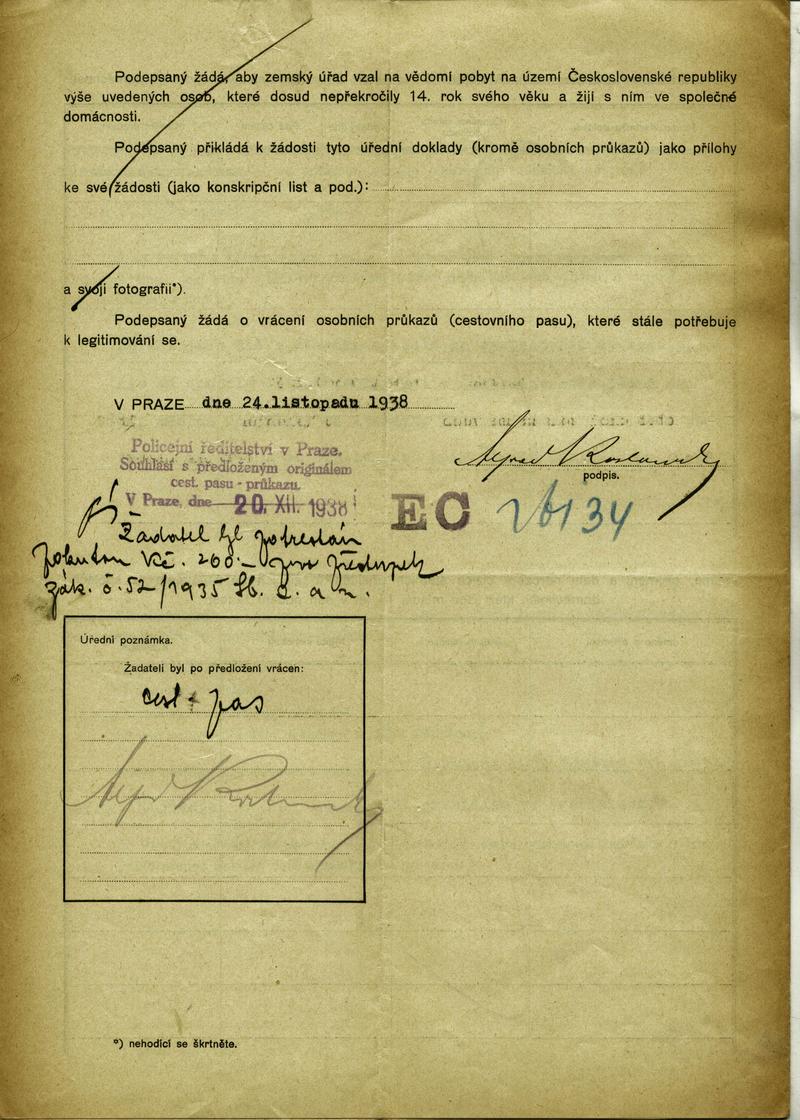 Podepsaný žádá, aby zemský úřad vzal na vědomí pobyt na území Československé republiky
výše uvedených osob, které dosud nepřekročily 14. rok svého věku a žijí s ním ve společné
domácnosti.
Podepsaný přikládá k žádosti tyto úřední doklady (kromě osobních průkazů) jako přílohy
ke své žádosti (jako konskripční list a pod.):
a svoji fotografii*).
Podepsaný žádá o vrácení osobních průkazů (cestovního pasu), které stále potřebuje
k legitimování se.
V PRAZE dne 24.listopadu 1938
Policejní ředitelství v Praze.
Souhlasí s předloženým originálem
cest. pasu - průkazu.
V Praze, dne 20. XII. 1938
Alfred
podpis.
EC
Žadatel byl potrestán
Kč. 200.-
zák. č. 52/1935 Sb. z. a n.
Úřední poznámka.
Žadateli byl po předložení vrácen:
cest. pas
Alfred
*) nehodící se škrtněte.